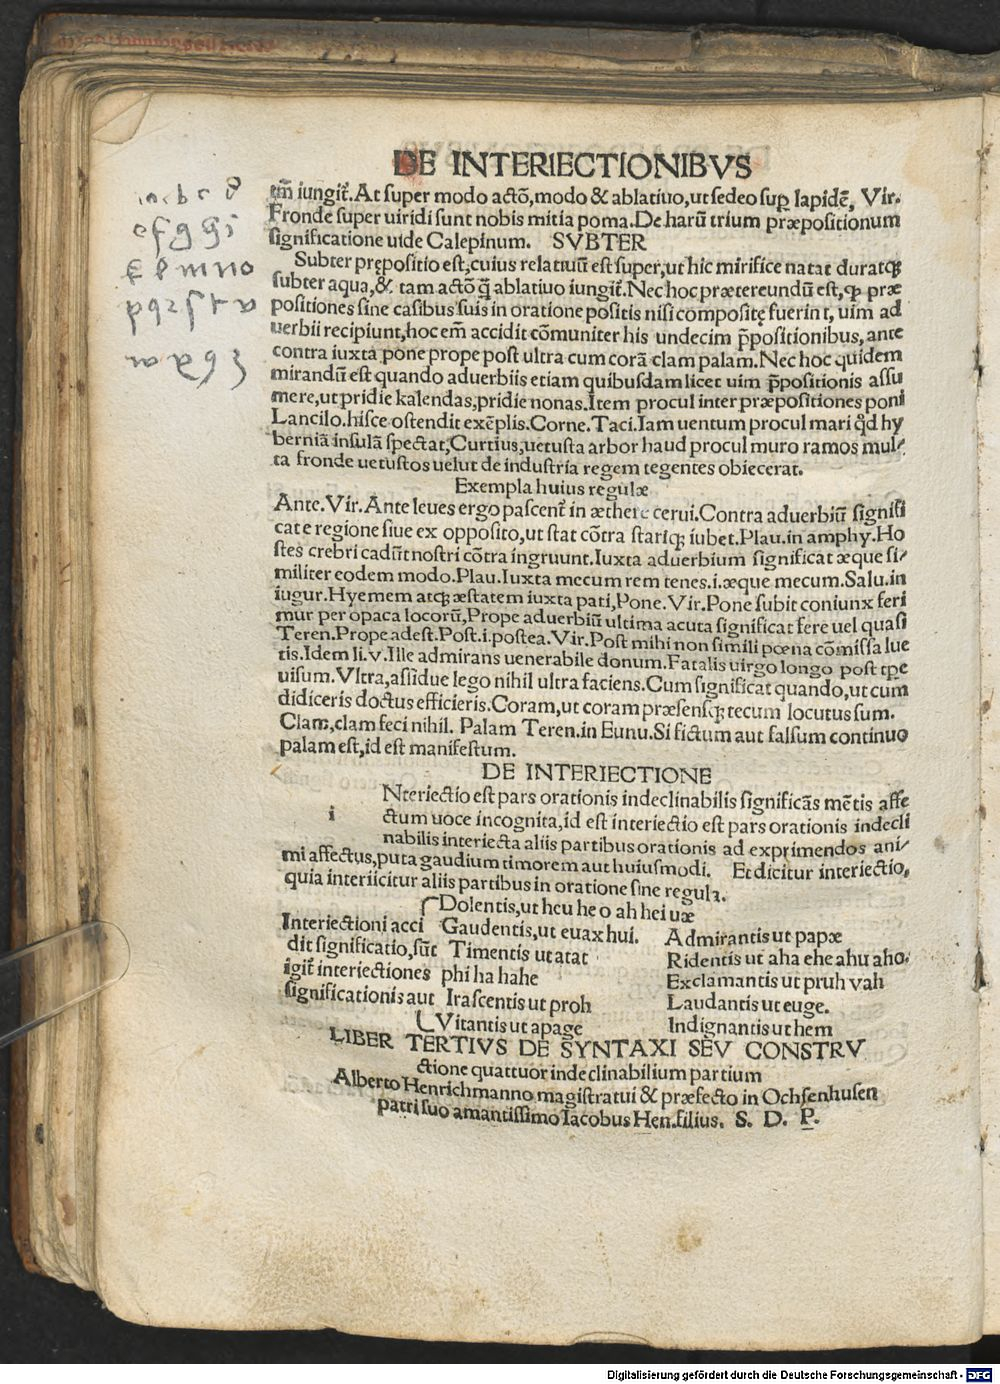 DE INTERIECTIONIBVS
a b c d
e f g g i
k l m n o
p q r ſ t v
w x y z
tm̄ iungit᷑. At ſuper modo actō, modo & ablatiuo, ut ſedeo ſuꝑ lapidē, Vir.
Fronde ſuper uiridi ſunt nobis mitia poma. De harū trium præpoſitionum
ſignificatione uide Calepinum. SVBTER
Subter prępoſitio eſt, cuius relatiuū eſt ſuper, ut hic mirifice natat duratqꝫ
ſubter aqua, & tam actō q̄ ablatiuo iungit᷑. Nec hoc prætereundū eſt, ꝙ præ
poſitiones ſine caſibus ſuis in oratione poſitis niſi compoſitę fuerint, uim ad
uerbii recipiunt, hoc em̄ accidit cōmuniter his undecim p̄poſitionibus, ante
contra iuxta pone prope poſt ultra cum corā clam palam. Nec hoc quidem
mirandū eſt quando aduerbiis etiam quibuſdam licet uim p̄poſitionis aſſu
mere, ut pridie kalendas, pridie nonas. Item procul inter præpoſitiones poni
Lancilo. hiſce oſtendit exēplis. Corne. Taci. Iam uentum procul mari qd̄ hy
berniā inſulā ſpectat, Curtius, uetuſta arbor haud procul muro ramos mul⸗
ta fronde uetuſtos uelut de induſtria regem tegentes obiecerat.
Exempla huius regulæ
Ante. Vir. Ante leues ergo paſcent᷑ in æthere cerui. Contra aduerbiū ſignifi
cat e regione ſiue ex oppoſito, ut ſtat cōtra ſtariqꝫ iubet. Plau. in amphy. Ho
ſtes crebri cadūt noſtri cōtra ingruunt. Iuxta aduerbium ſignificat æque ſi⸗
militer eodem modo. Plau. Iuxta mecum rem tenes. i. æque mecum. Salu. in
iugur. Hyemem atqꝫ æſtatem iuxta pati, Pone. Vir. Pone ſubit coniunx feri
mur per opaca locorū, Prope aduerbiū ultima acuta ſignificat fere uel quaſi
Teren. Prope adeſt. Poſt. i. poſtea. Vir. Poſt mihi non ſimili pœna cōmiſſa lue
tis. Idem li. v. Ille admirans uenerabile donum. Fatalis uirgo longo poſt tp̄e
uiſum. Vltra, aſſidue lego nihil ultra faciens. Cum ſignificat quando, ut cum
didiceris doctus efficieris. Coram, ut coram præſenſqꝫ tecum locutus ſum.
Clam, clam feci nihil. Palam Teren. in Eunu. Si fictum aut falſum continuo
palam eſt, id eſt manifeſtum.
DE INTERIECTIONE
i Nteriectio eſt pars orationis indeclinabilis ſignificās mētis affe
ctum uoce incognita, id eſt interiectio eſt pars orationis indecli
nabilis interiecta aliis partibus orationis ad exprimendos ani⸗
mi affectus, puta gaudium timorem aut huiuſmodi. Et dicitur interiectio,
quia interiicitur aliis partibus in oratione ſine regula.
Dolentis, ut heu he o ah hei uæ
Interiectioni acci Gaudentis, ut euax hui. Admirantis ut papæ
dit ſignificatio, ſūt Timentis ut atat Ridentis ut aha ehe ahu aho.
igit᷑ interiectiones phi ha hahe Exclamantis ut pruh vah
ſignificationis aut Iraſcentis ut proh Laudantis ut euge.
Vitantis ut apage Indignantis ut hem
LIBER TERTIVS DE SYNTAXI SEV CONSTRV
ctione quattuor indeclinabilium partium
Alberto Henrichmanno magiſtratui & præfecto in Ochſenhuſen
patri ſuo amantiſſimo Iacobus Hen. filius. S. D. P.
Digitalisierung gefördert durch die Deutsche Forschungsgemeinschaft - DFG